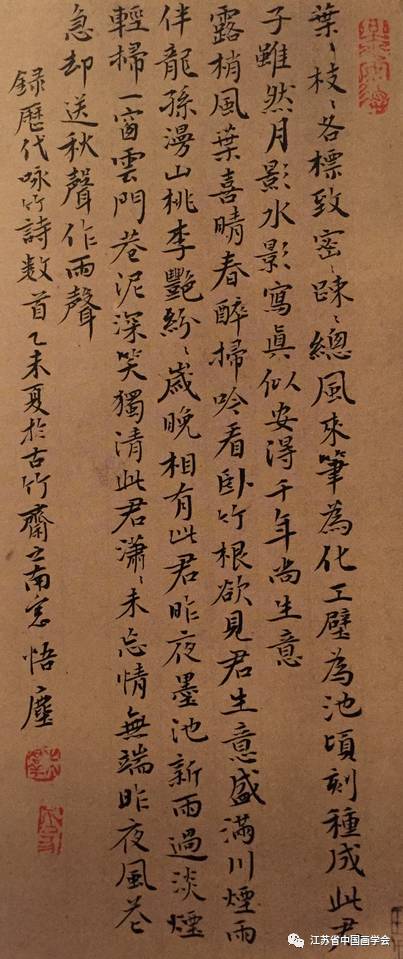 葉〻枝〻各標致密〻踈〻總風來筆為化工壁為池頃刻種成此君
子雖然月影水影寫真似安得千年尚生意
露梢風葉喜晴春醉掃吟看臥竹根欲見君生意盛滿川煙雨
伴龍孫漫山桃李艷紛〻歲晚相有此君昨夜墨池新雨過淡煙
輕掃一窗雲門巷泥深笑獨清此君瀟〻未忘情無端昨夜風
急却送秋聲作雨聲
録歷代咏竹詩数首乙未夏於古竹齋之南窓悟塵
江苏省中国画学会